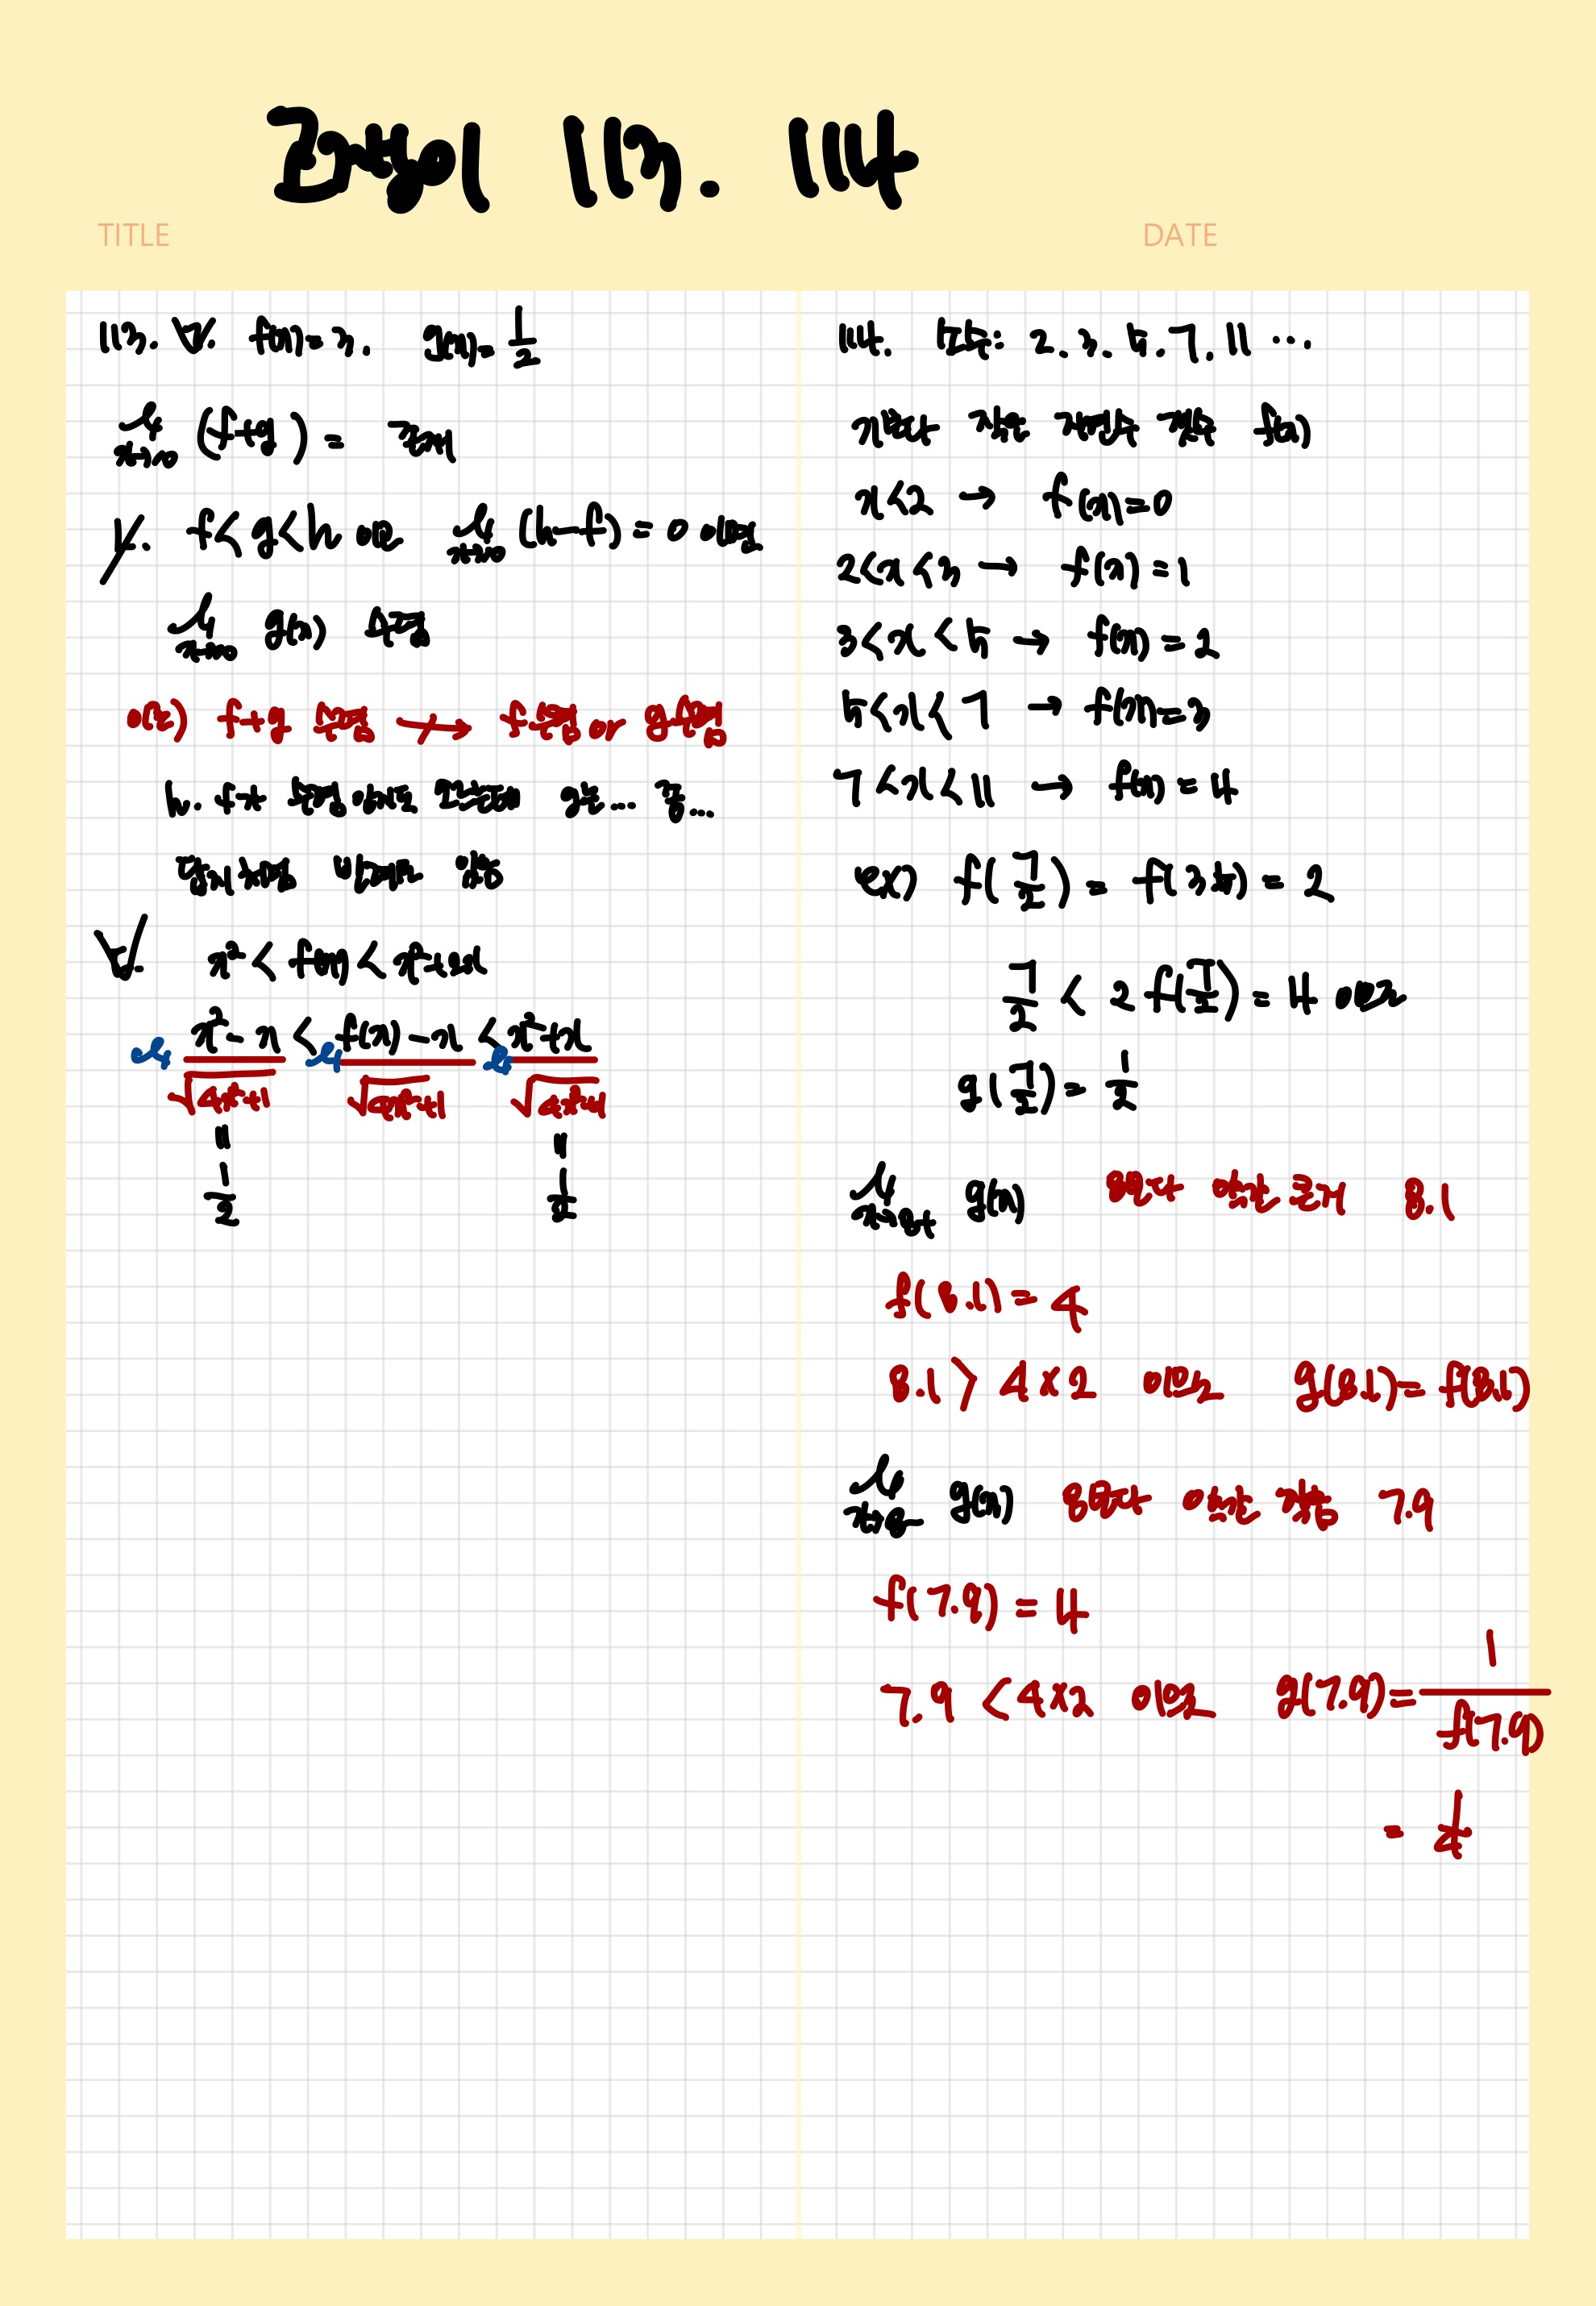 113. 114
TITLE
DATE
113. ㄱ. f(x)=3. g(x)=1/2
lim x→∞ (f+g) = 존재
ㄴ. f<g<h 이고 lim x→∞ (h-f)=0 이면
lim x→∞ g(x) 수렴
f+g 수렴 ↛ f수렴 or g수렴
h. f가
ㄷ. x²<f(x)<x²+2x
lim (x²-x)/√(4x⁴+1) < lim (f(x)-x)/√(4x⁴+1) < lim (x²+x)/√(4x⁴+1)
= 1/2 = 1/2
114. 소수: 2. 3. 5. 7. 11 ...
x보다 작은 자연수 개수 f(x)
x<2 → f(x)=0
2<x<3 → f(x)=1
3<x<5 → f(x)=2
5<x<7 → f(x)=3
7<x<11 → f(x)=4
ex) f(7/2) = f(3.5) = 2
7/2 < 2f(7/2) = 4 이므로
g(7/2) = 1/2
lim x→8+ g(x) 8보다 약간 큰거 8.1
f(8.1) = 4
8.1 > 4×2 이므로 g(8.1) = f(8.1)
lim x→8- g(x) 8보다 약간 작음 7.9
f(7.9) = 4
7.9 < 4×2 이므로 g(7.9) = 1/f(7.9)
= 1/4